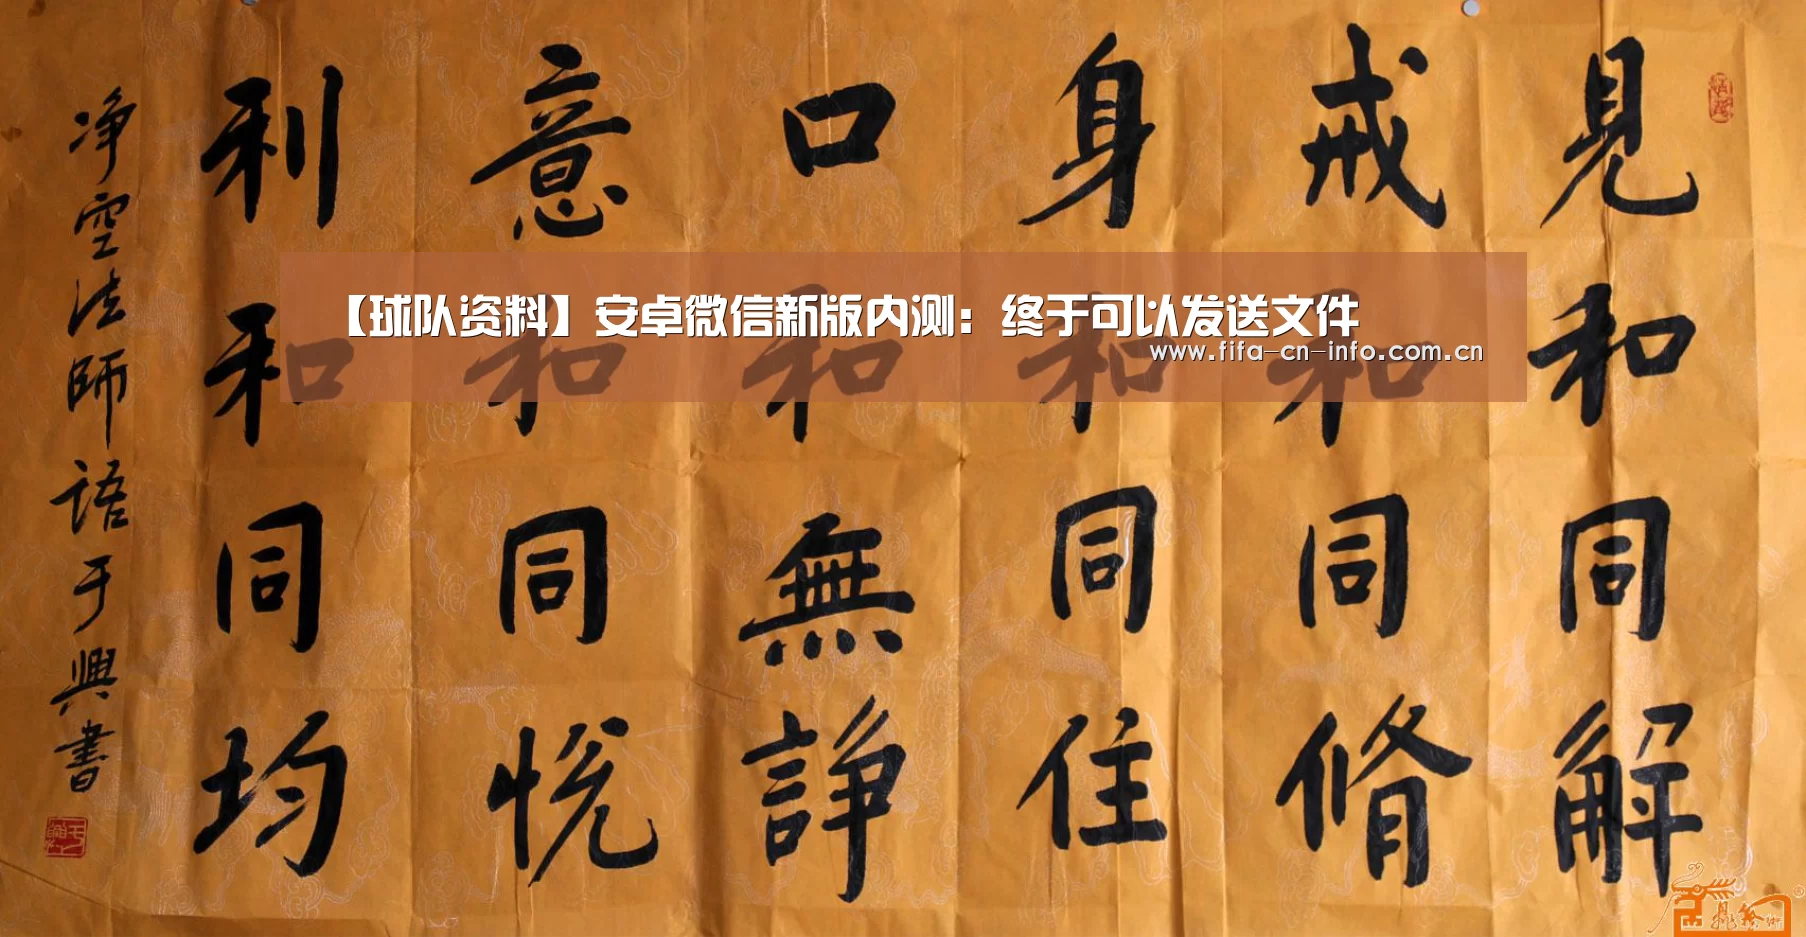 見和同解
戒和同脩
身和同住
口和無諍
意和同悦
利和同均
净空法師語于興書
【球队资料】安卓微信新版内测：终于可以发送文件
www.fifa-cn-info.com.cn